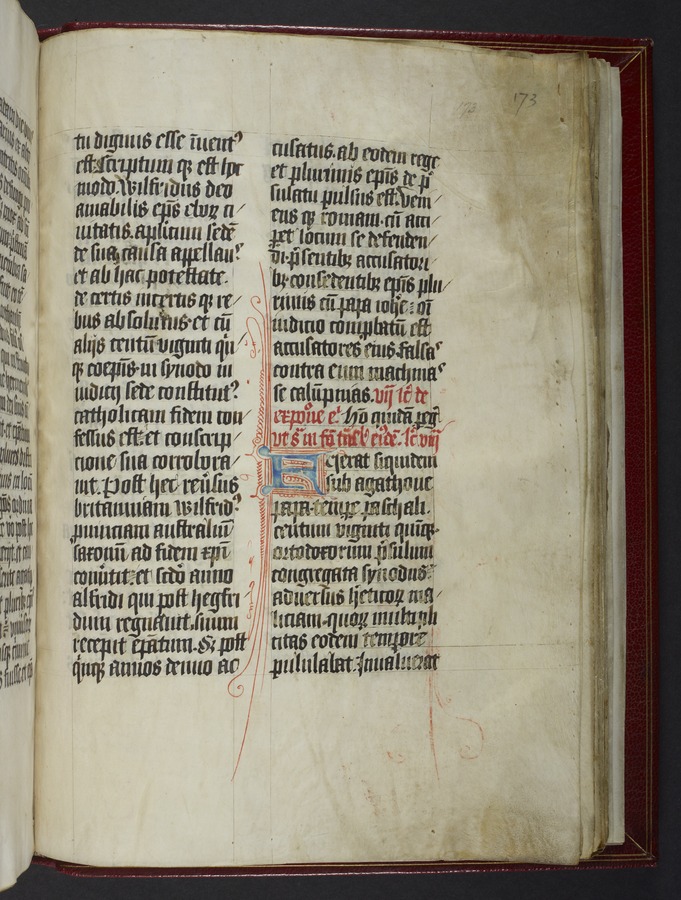 173
tu dignus esse īuent⁹
est. Scriptum q̄ est hoc
modo. Wilfridus deo
amabilis ep̄s eboꝝ ci/
uitatis. aplicam sedē
de sua causa appellan⁹
et ab hac potestate.
de certis incertis q̄ re/
bus absolutus. et cū
alijs centū viginti qn/
q̄ coep̄is in synodo in
iudicij sede constitut⁹
catholicam fidem con/
fessus est. et conscrip/
cione sua corrobora/
uit. Post hec reūsus
britanniam wilfrid⁹
puinciam australiū
saxonū ad fidem xp̄i
conūtit. et sc̄do anno
alfridi qui post hegfri/
dum regnauit. suum
recepit ep̄atum. Et post
qinq̄ annos denuo ac
cusatus. ab eodem rege
et plurimis ep̄is de p̄
sulatu pulsus est. veni/
ens q̄ romam. cū acci/
ꝑet locum se defenden/
di. p̄sentibꝫ accusatori/
bꝫ. consedentibꝫ ep̄is plu/
rimis cū papa ioh̄e: oī
iudicio comꝓbatū est
accusatores eius falsas
contra eum machinas
se calūpnias. vij lc̄ de
expōne e⁹. Hō quidā pegr̄
lc̄ viij
Egerat siquidem
sub agathone
papa.
centum viginti quinq̄
ortodoxorum p̄sulum
congregata synodus.
aduersus heticoꝝ ma/
liciam. quoꝝ multipli
citas eodem tempore
pululabat. Inualuerat